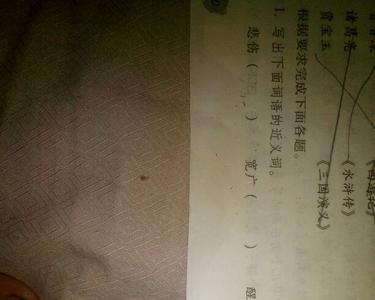 诸葛亮 《水浒传》
贾宝玉 《三国演义》
根据要求完成下面各题。
1. 写出下面词语的近义词。
悲伤( ) 宽广( ) 醒